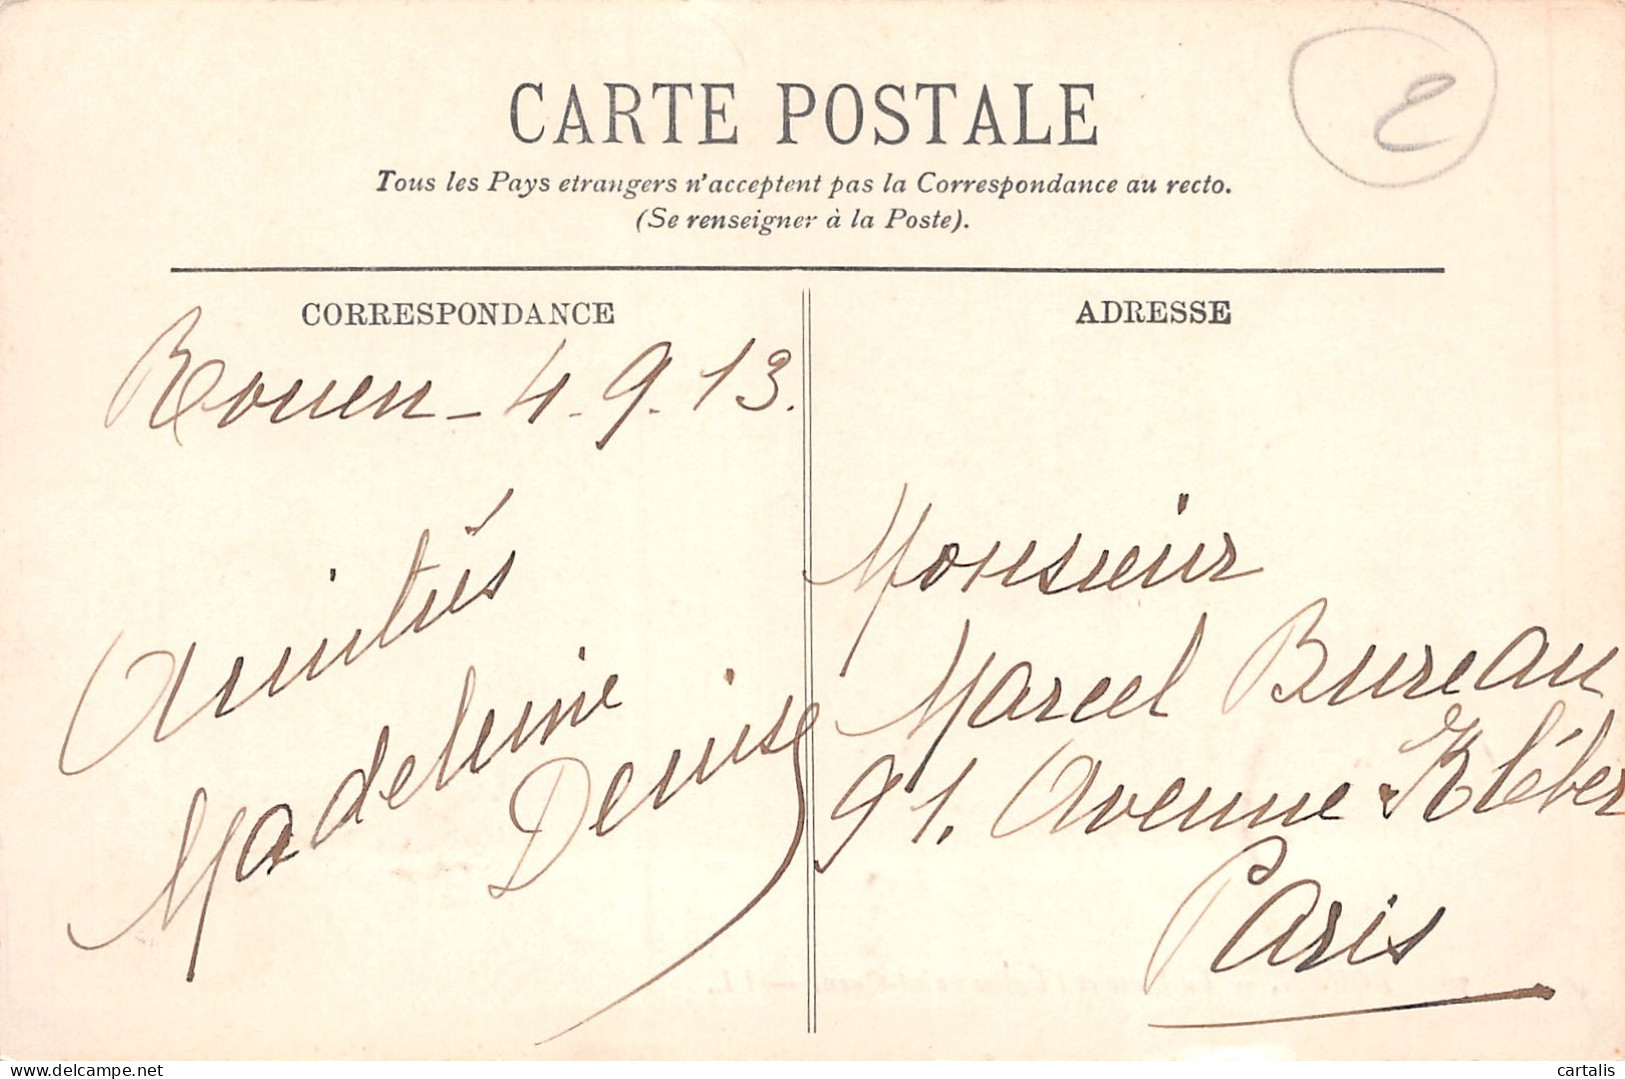 CARTE POSTALE
Tous les Pays etrangers n'acceptent pas la Correspondance au recto.
(Se renseigner à la Poste).
CORRESPONDANCE
Rouen - 4.9.13.
Amitiés
Madeleine
Denise
ADRESSE
Monsieur
Marcel Bureau
91, Avenue Kléber
Paris
cartalis